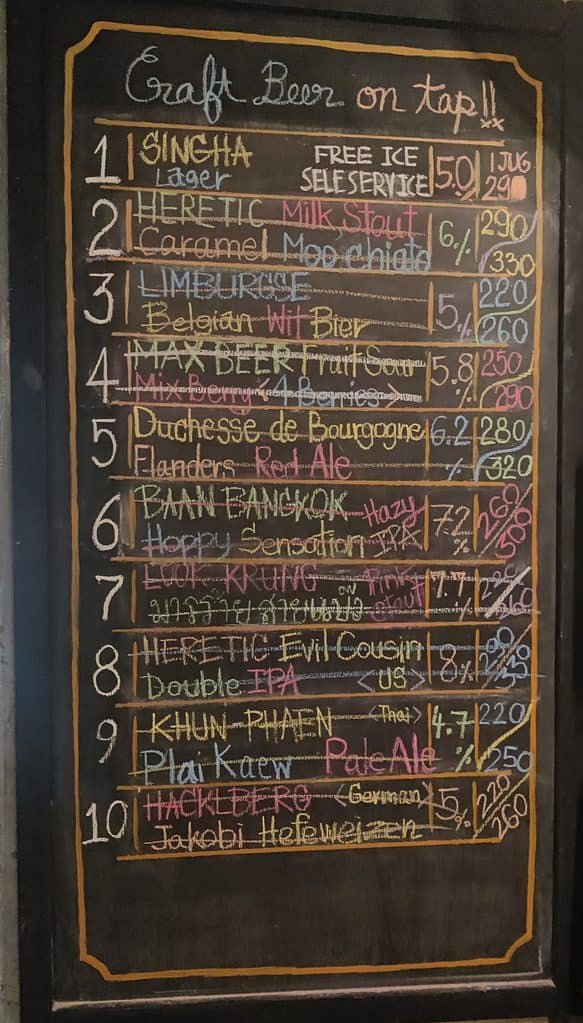 Craft Beer on tap!!
1 SINGHA FREE ICE 5.0 % 1 JUG
Lager SELF SERVICE 290
2 HERETIC Milk Stout 6% 290
Caramel Moo chiato 330
3 LIMBURGSE 5% 220
Belgian Wit Bier 260
4 MAX BEER Fruit Sour 5.8 % 250
Mix Berry <4 Berries> 290
5 Duchesse de Bourgogne 6.2 % 280
Flanders Red Ale 320
6 BAAN BANGKOK Hazy 7.2 % 260
Hoppy Sensation IPA 300
7 LOOK KRUNG Pink
Stout
8 HERETIC Evil Cousin 8%
Double IPA <US>
9 KHUN PHAEN <Thai> 4.7 % 220
Plai Kaew Pale Ale 250
10 HACKLBERG <German> 5% 220
Jakobi Hefeweizen 260